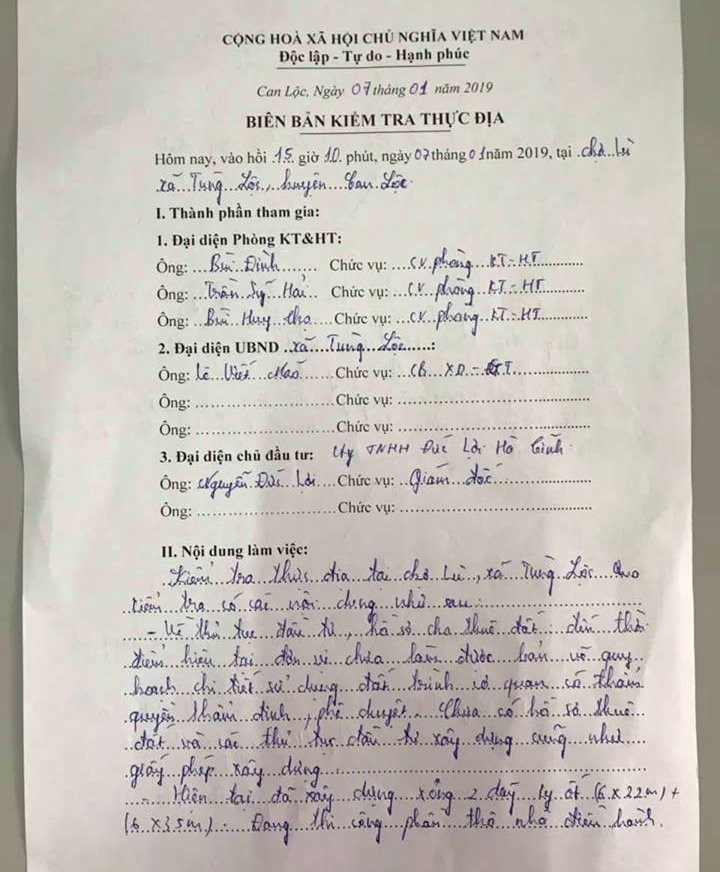 CỘNG HOÀ XÃ HỘI CHỦ NGHĨA VIỆT NAM
Độc lập - Tự do - Hạnh phúc
Can Lộc, Ngày 07 tháng 01 năm 2019
BIÊN BẢN KIỂM TRA THỰC ĐỊA
Hôm nay, vào hồi 15 giờ 10 phút, ngày 07 tháng 01 năm 2019, tại chợ Lù
xã Tùng Lộc, huyện Can Lộc
I. Thành phần tham gia:
1. Đại diện Phòng KT&HT:
Ông: Bùi Đình Chức vụ: CV phòng KT-HT
Ông: Trần Sỹ Hải Chức vụ: CV phòng KT-HT
Ông: Bùi Huy Chức vụ: CV phòng KT-HT
2. Đại diện UBND xã Tùng Lộc:
Ông: Lê Viết Chức vụ: CB XD-
Ông: Chức vụ:
Ông: Chức vụ:
3. Đại diện chủ đầu tư: Cty TNHH Đức Lợi Hà Tĩnh
Ông: Nguyễn Đức Lợi Chức vụ: Giám đốc
Ông: Chức vụ:
II. Nội dung làm việc:
Kiểm tra thực địa tại chợ Lù, xã Tùng Lộc. Qua
kiểm tra có các nội dung như sau:
- Về thủ tục đầu tư, hồ sơ cho thuê đất: đến thời
điểm hiện tại đơn vị chưa làm được bản vẽ quy
hoạch chi tiết sử dụng đất trình cơ quan có thẩm
quyền thẩm định, phê duyệt. Chưa có hồ sơ thuê
đất và các thủ tục đầu tư xây dựng cũng như
giấy phép xây dựng.
- Hiện tại đã xây dựng xong 2 dãy ly ốt (6 x 22m) +
(6 x 35m). Đang thi công phần thô nhà điều hành.